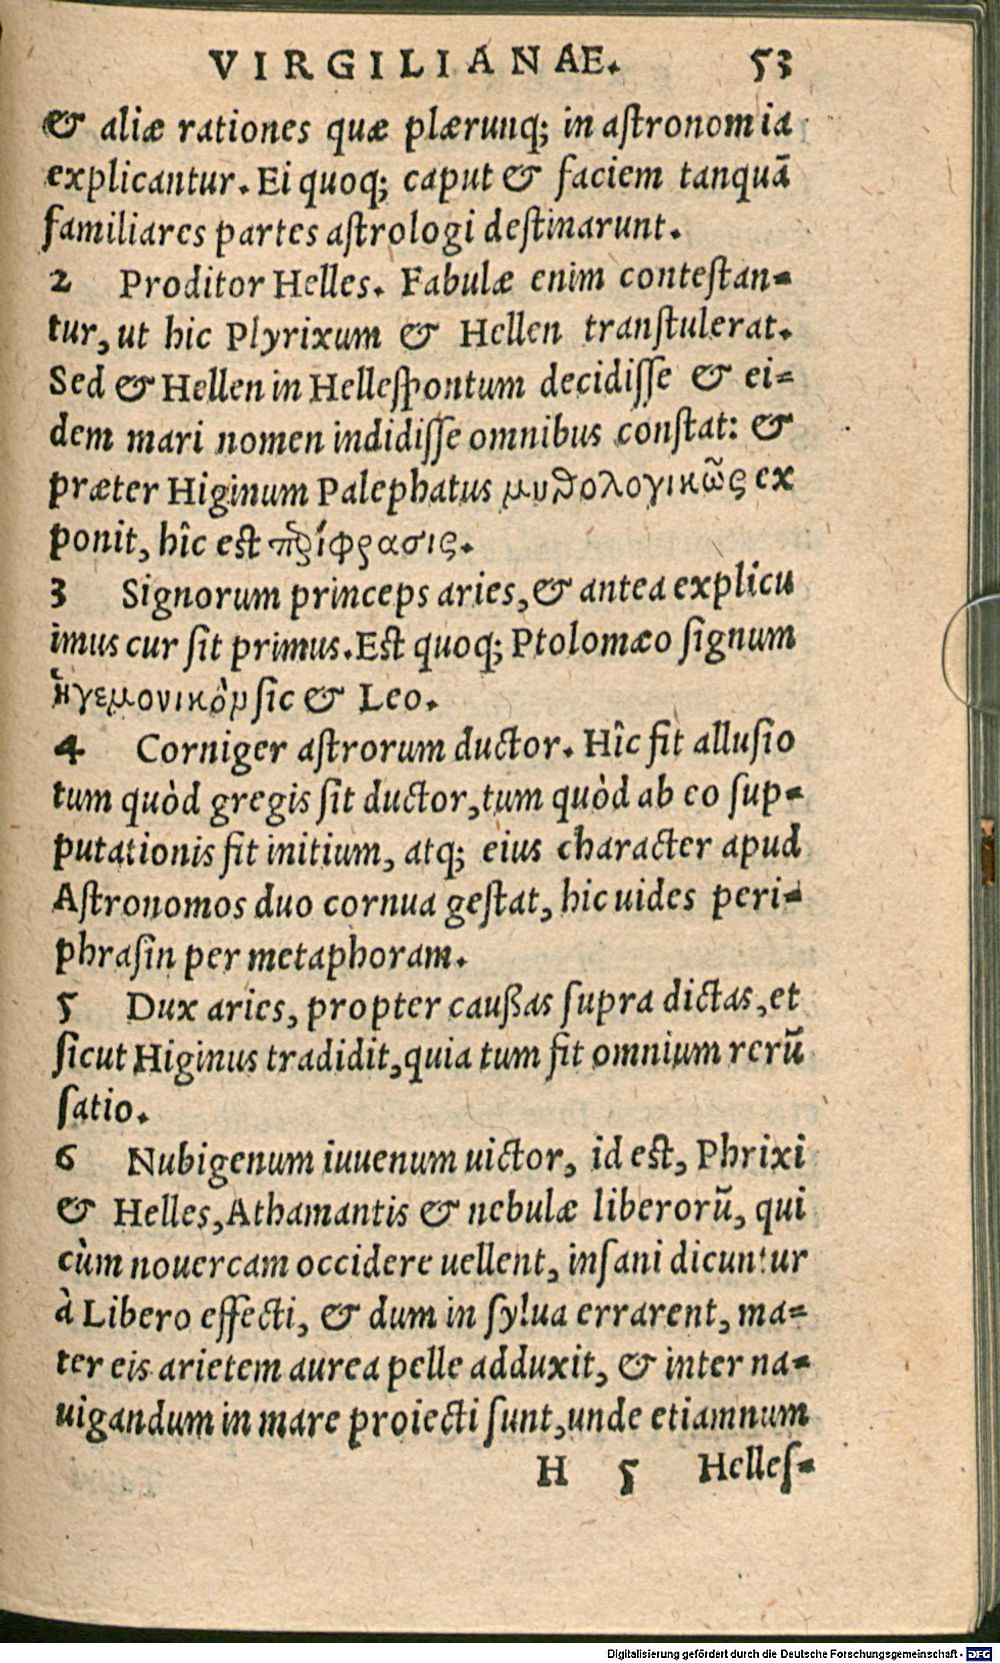 VIRGILIANAE. 53
& aliæ rationes quæ plærunq; in astronomia
explicantur. Ei quoq; caput & faciem tanquā
familiares partes astrologi destinarunt.
2 Proditor Helles. Fabulæ enim contestan-
tur, ut hic Plyrixum & Hellen transtulerat.
Sed & Hellen in Hellespontum decidisse & ei-
dem mari nomen indidisse omnibus constat: &
præter Higinum Palephatus μυθολογικῶς ex
ponit, hîc est πρίφρασις.
3 Signorum princeps aries, & antea explicu
imus cur sit primus. Est quoq; Ptolomæo signum
ἡγεμονικὸν sic & Leo.
4 Corniger astrorum ductor. Hîc fit allusio
tum quòd gregis sit ductor, tum quòd ab eo sup-
putationis fit initium, atq; eius character apud
Astronomos duo cornua gestat, hic uides peri-
phrasin per metaphoram.
5 Dux aries, propter caußas supra dictas, et
sicut Higinus tradidit, quia tum fit omnium rerū
satio.
6 Nubigenum iuuenum uictor, id est, Phrixi
& Helles, Athamantis & nebulæ liberorū, qui
cùm nouercam occidere uellent, insani dicuntur
à Libero effecti, & dum in sylua errarent, ma-
ter eis arietem aurea pelle adduxit, & inter na-
uigandum in mare proiecti sunt, unde etiamnum
H 5 Helles-
Digitalisierung gefördert durch die Deutsche Forschungsgemeinschaft - DFG